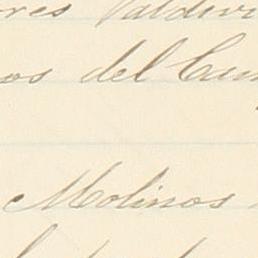 ores Valdivi
os del Cam
Molinos